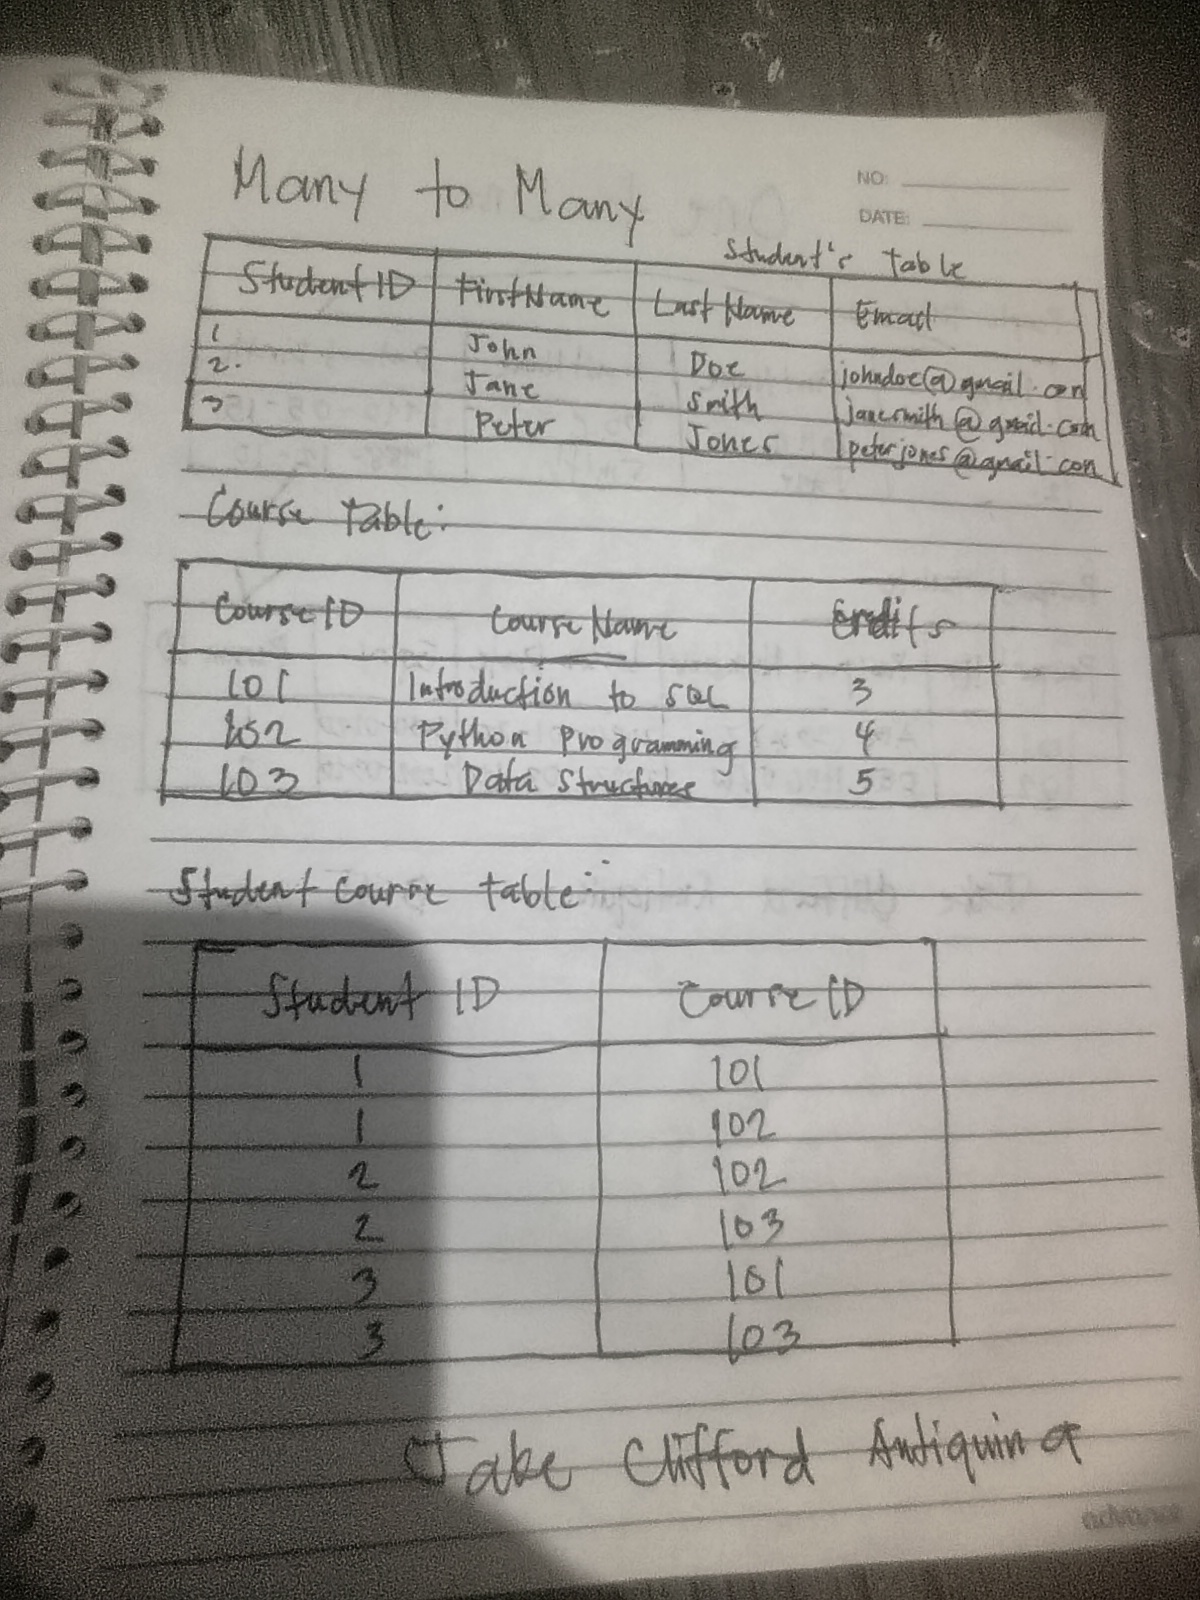 Many to Many
NO:
DATE:
Student's Table
StudentID FirstName Last Name Email
1 John Doe johndoe@gmail.con
2. Jane Smith janesmith@gmail.com
3 Peter Jones peterjones@gmail.con
Course Table:
CourseID Course Name Credits
101 Introduction to SQL 3
102 Python Programming 4
103 Data Structures 5
Student Course table:
Student ID Course ID
1 101
1 102
2 102
2 103
3 101
3 103
Jake Clifford Antiquina
advance